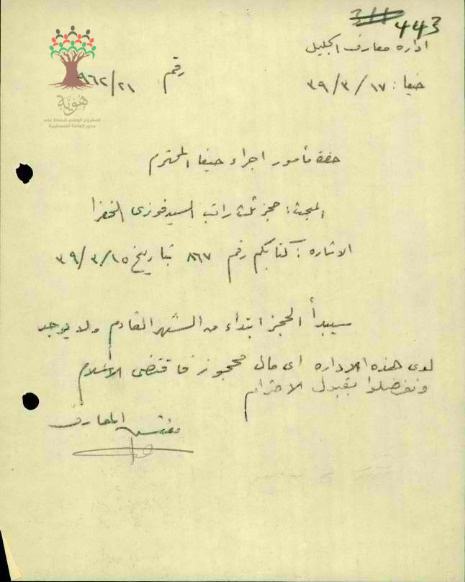 443
ادارة معارف الجليل
رقم ٩٦٢/٢١
حيفا: ٣٩/٣/١٧
هوية
حضرة مأمور اجراء حيفا المحترم
المبحث: حجز ثلث راتب السيد فوزي الخضرا
الاشارة: كتابكم رقم ٨٦٧ تاريخ ٣٩/٣/١٥
سيبدأ الحجز ابتداء من الشهر القادم ولا يوجد
لدى هذه الادارة اي مال محجوز فاقتضى الاعلام
وتفضلوا بقبول الاحترام
مفتش المعارف